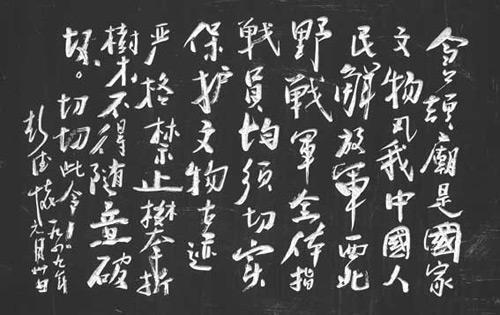 仓颉廟是國家
文物凡我中國人
民解放軍西北
野戰軍全体指
戰員均須切实
保护文物古迹
严格禁止攀折
樹木不得随意破
坏。切切此令。
彭德懷
一九四九年